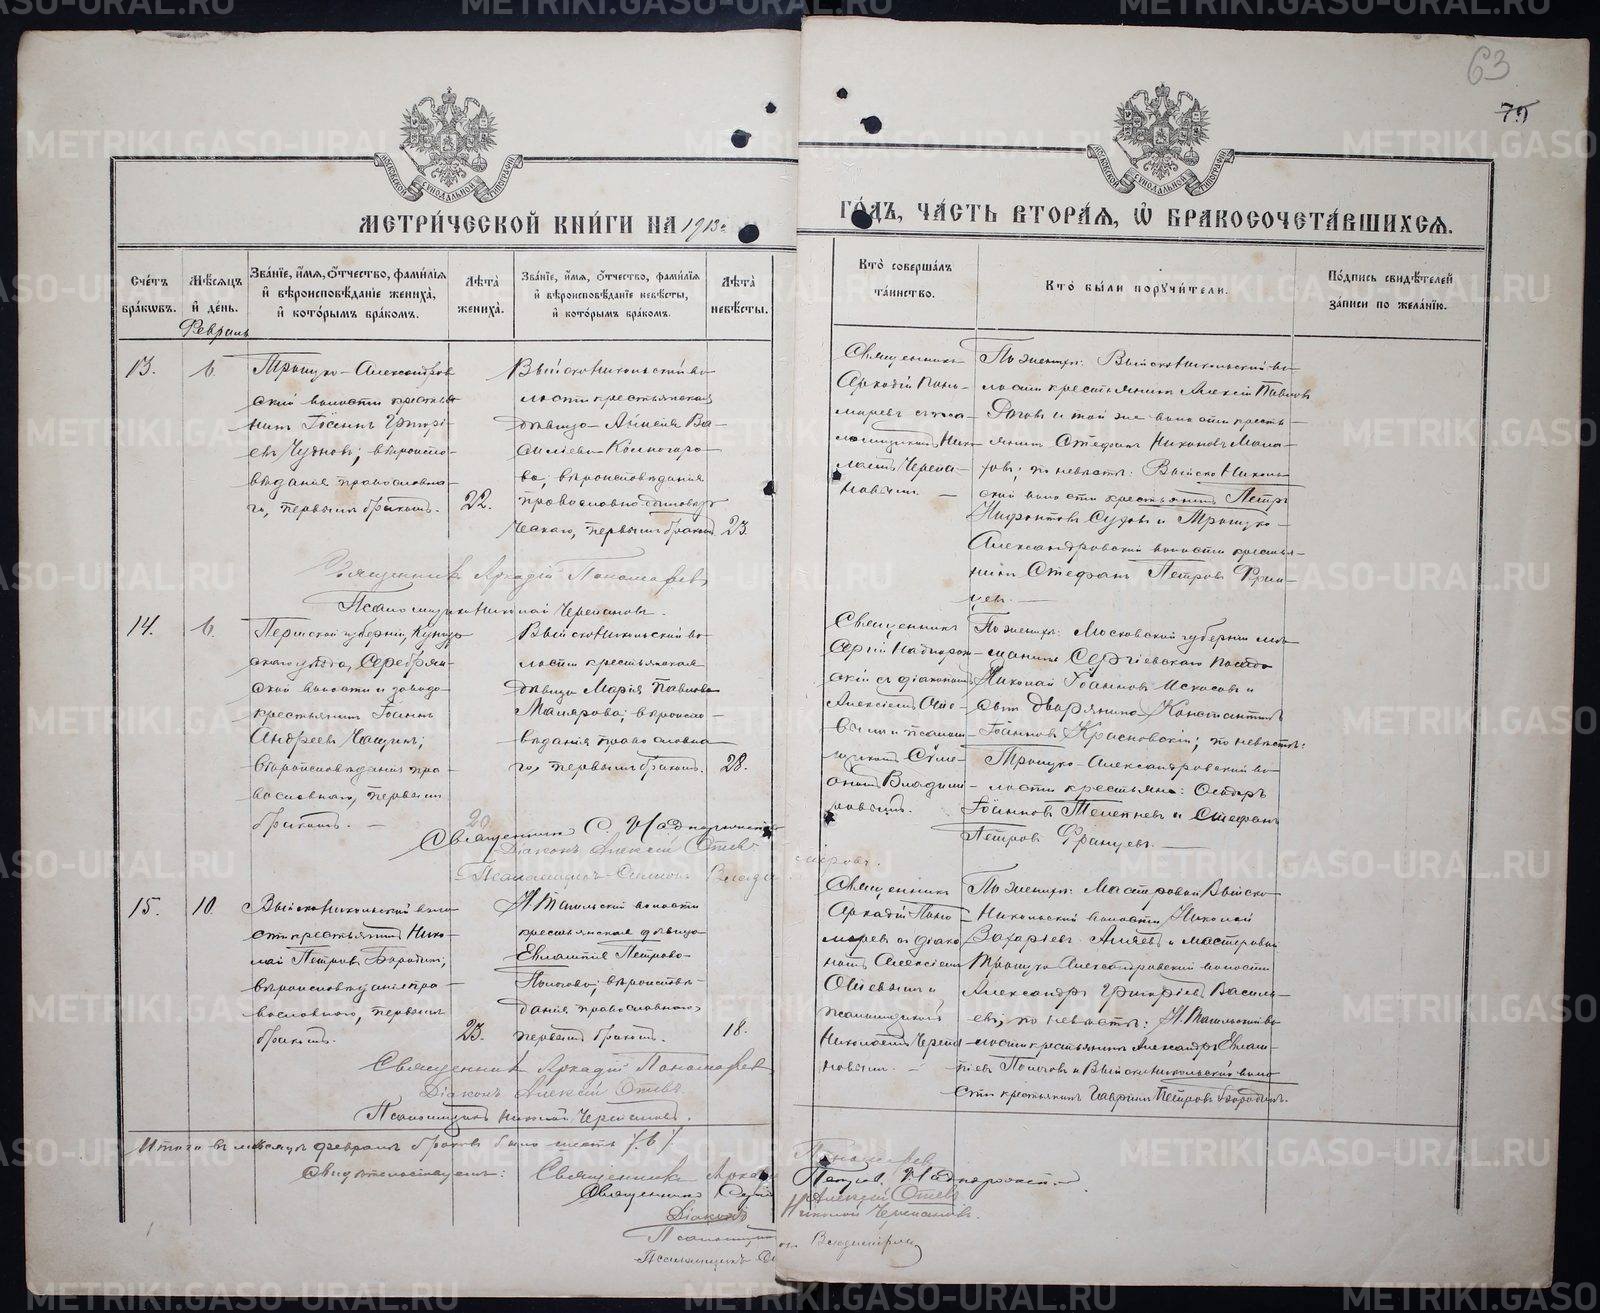 63
75
МЕТРИ́ЧЕСКОЙ КНИ́ГИ НА 1913
ГО́ДЪ, ЧА́СТЬ ВТОРА́Я, Ѡ БРАКОСОЧЕТА́ВШИХСЯ.
Сче́тъ бра́ковъ.
Мѣ́сяцъ и день.
Зва́нїе, и́мя, о́тчество, фами́лїя и вѣроисповѣ́данїе жениха̀, и кото́рымъ бра́комъ.
Лѣ́та жениха̀.
Зва́нїе, и́мя, о́тчество, фами́лїя и вѣроисповѣ́данїе невѣ́сты, и кото́рымъ бра́комъ.
Лѣ́та невѣ́сты.
Кто̀ соверша́лъ та́инство.
Кто̀ бы́ли порꙋчи́тели.
По́дпись свидѣ́телей за́писи по жела́нїю.
Февраль
13.
6.
Троицко-Александров
ской волости крестья
нинъ Іоаннъ Григорі
евъ Чудновъ; вѣроиспо-
вѣданія православна
го, первымъ бракомъ.
22.
Выйско Никольской во
лости крестьянская
дѣвица
ва; вѣроисповѣданія
православно-едановѣр
ческаго, первымъ бракомъ
23.
Священникъ
Аркадій Поно-
маревъ съ псал
ломщикомъ Нико
лаемъ Черепа-
новымъ.
По женихѣ: Выйско Никольской во-
лости крестьянинъ Алексій Павловъ
и той же волости кресть-
янинъ Стефанъ
; по невѣстѣ: Выйско Николь-
ской волости крестьянинъ Петръ
и Троицко-
Александровской волости крестья-
нинъ Стефанъ Петровъ Фран-
цевъ.
Священникъ Аркадій Пономаревъ
Псаломщикъ Николай Черепановъ.
14.
6.
Пермской губерніи, Кунгур
скаго уѣзда, Серебрян
ской волости и завода
крестьянинъ Іоаннъ
Андреевъ Чащинъ;
вѣроисповѣданія пра-
вославнаго, первымъ
бракомъ.
20
Выйско Никольской во
лости крестьянская
дѣвица Марія Павлова
Малярова; вѣроиспо-
вѣданія православна
го, первымъ бракомъ.
28.
Священникъ
Сергій Надпорож
скій съ діакономъ
Алексіемъ Оте-
вымъ и псалом-
щикомъ Симе-
ономъ Владими
ровымъ.
По женихѣ: Московской губерніи мѣ-
щанинъ Сергіевскаго Посада
Николай Іоанновъ и
сынъ дворянина Константинъ
Іоанновъ Красновскій; по невѣстѣ:
Троицко-Александровской во-
лости крестьяне:
Іоанновъ и Стефанъ
Петровъ Францевъ.
Священникъ С. Надпорожскій
Діаконъ Алексій Отевъ
Псаломщикъ Симеонъ Влади
міровъ.
15.
10.
Выйско Никольской воло
сти крестьянинъ Нико-
лай Петровъ Бородинъ;
вѣроисповѣданія пра-
вославнаго, первымъ
бракомъ.
23.
Н. Тагильской волости
крестьянская дѣвица
Евлампія Петрова
; вѣроисповѣ-
данія православнаго,
первымъ бракомъ.
18.
Священникъ
Аркадій Поно
маревъ съ діако
номъ Алексіемъ
Отевымъ и
псаломщикомъ
Николаемъ Черепа
новымъ.
По женихѣ: Мастеровой Выйско-
Никольской волости Николай
Захаріевъ и мастеровой
Троицко Александровской волости
Александръ Григоріевъ Василь-
евъ; по невѣстѣ: Н. Тагильской во
лости крестьянинъ Александръ Евлам-
піевъ и Выйско Никольской воло
сти крестьянинъ Гавріилъ Петровъ Бородинъ.
Священникъ Аркадій Пономаревъ
Діаконъ Алексій Отевъ
Псаломщикъ Николай Черепановъ.
Итого въ мѣсяцѣ февралѣ браковъ было шесть /6/
Свидѣтельствуемъ: Священникъ Аркадій Пономаревъ
Священникъ Сергій Петровъ Надпорожскій.
Діаконъ Алексій Отевъ
Псаломщикъ Николай Черепановъ.
Псаломщикъ Симеонъ Владиміровъ
METRIKI.GASO-URAL.RU